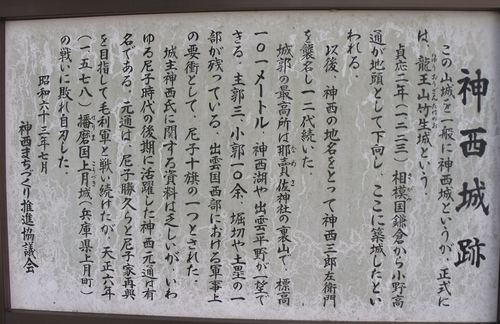 神西城跡
この山城を一般に神西城というが、正式に
は、龍王山竹生城という。
貞応二年(一二二三)相模国鎌倉から小野高
通が地頭として下向し、ここに築城したとい
われる。
以後、神西の地名をとって神西三郎左衛門
を襲名し一二代続いた。
城郭の最高所は那売佐神社の裏山で、標高
一〇一メートル。神西湖や出雲平野が一望で
きる。主郭三、小郭一〇余、堀切や土塁の一
部が残っている。出雲国西部における軍事上
の要衝として、尼子十旗の一つとされた。
城主神西氏に関する資料は乏しいが、いわ
ゆる尼子時代の後期に活躍した神西元通は有
名である。元通は、尼子勝久らと尼子家再興
を目指して毛利軍と戦い続けたが、天正六年
(一五七八)播磨国上月城(兵庫県上月町)
の戦いに敗れ自刃した。
昭和六十三年七月
神西まちづくり推進協議会